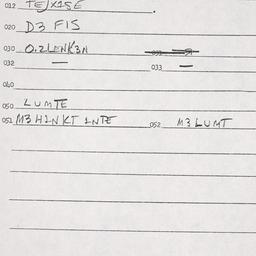 012 TEJX1SE
020 D3 FIS
030 O.2LENK3N
032 — 033 —
040
050 LUMTE
051 M3 H1NKT 1NTE 052 M3 LUMT